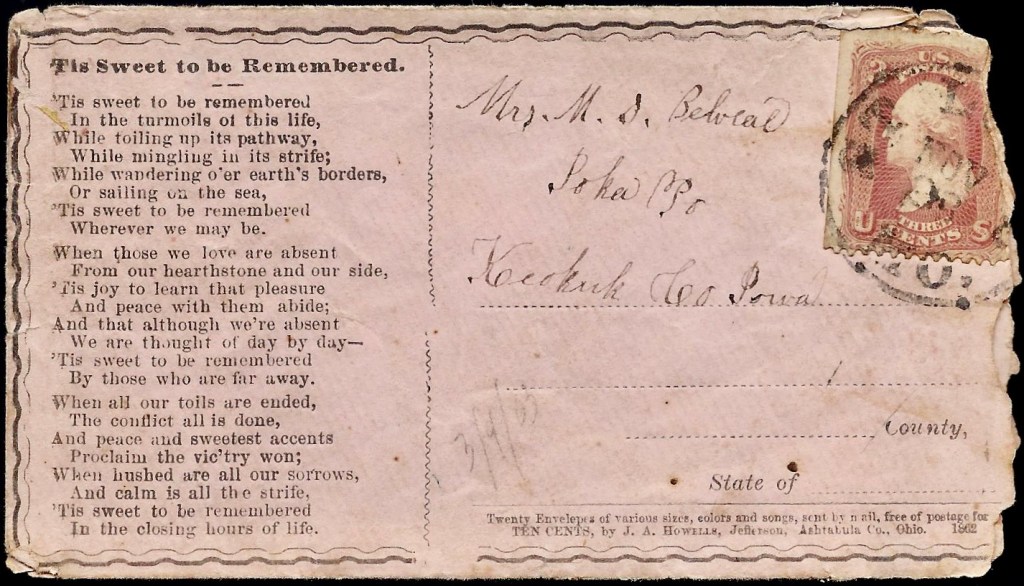 'Tis Sweet to be Remembered.
'Tis sweet to be remembered
In the turmoils of this life,
While toiling up its pathway,
While mingling in its strife;
While wandering o'er earth's borders,
Or sailing on the sea,
'Tis sweet to be remembered
Wherever we may be.
When those we love are absent
From our hearthstone and our side,
'Tis joy to learn that pleasure
And peace with them abide;
And that although we're absent
We are thought of day by day—
'Tis sweet to be remembered
By those who are far away.
When all our toils are ended,
The conflict all is done,
And peace and sweetest accents
Proclaim the vic'try won;
When hushed are all our sorrows,
And calm is all the strife,
'Tis sweet to be remembered
In the closing hours of life.
Mrs. M. D.
Ioka Po
Keokuk Co Iowa
County,
State of
Twenty Envelopes of various sizes, colors and songs, sent by mail, free of postage for
TEN CENTS, by J. A. Howells, Jefferson, Ashtabula Co., Ohio. 1862
U.S.
3
U THREE S
CENTS